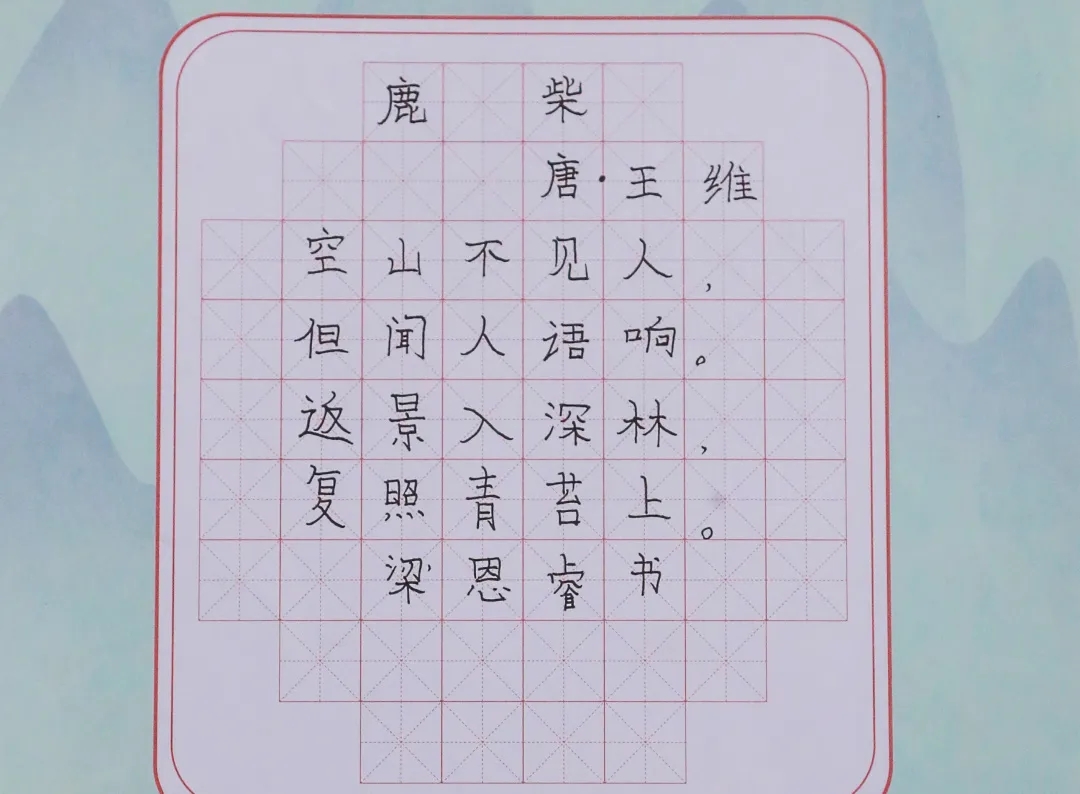 鹿柴
唐·王维
空山不见人，
但闻人语响。
返景入深林，
复照青苔上。
梁恩睿书